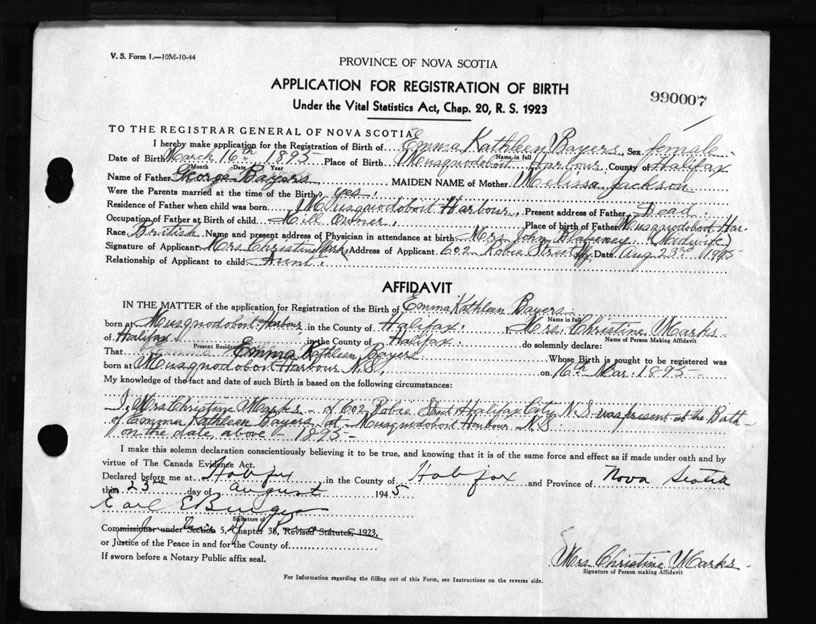 V. S. Form 1.—10M-10-44
PROVINCE OF NOVA SCOTIA
APPLICATION FOR REGISTRATION OF BIRTH
990007
Under the Vital Statistics Act, Chap. 20, R. S. 1923
TO THE REGISTRAR GENERAL OF NOVA SCOTIA
I hereby make application for the Registration of Birth of Emma Kathleen Bayers Sex female
Name in full
Date of Birth March 16th 1895 Place of Birth Musquodoboit Harbour County of Halifax
Month Date Year
Name of Father George Bayers MAIDEN NAME of Mother Melissa Jackson
Were the Parents married at the time of the Birth yes.
Residence of Father when child was born Musquodoboit Harbour, Present address of Father Dead.
Occupation of Father at Birth of child Mill Owner. Place of birth of Father Musquodoboit Har
Race British Name and present address of Physician in attendance at birth Mrs. John (Midwife)
Signature of Applicant Mrs Christine Marks Address of Applicant 602 Robie Street Date Aug 23rd 1945
Relationship of Applicant to child Aunt.
AFFIDAVIT
IN THE MATTER of the application for Registration of the Birth of Emma Kathleen Bayers
Name in full
born at Musquodoboit Harbour in the County of Halifax. Mrs. Christine Marks
Name of Person Making Affidavit
of Halifax in the County of Halifax. do solemnly declare:
Present Residence
That Emma Kathleen Bayers Whose Birth is sought to be registered was
born at Musquodoboit Harbour N.S. on 16th Mar. 1895
My knowledge of the fact and date of such Birth is based on the following circumstances:
I, Mrs Christine Marks of 602 Robie Street Halifax City N.S. was present at the Birth
of Emma Kathleen Bayers at Musquodoboit Harbour N.S.
on the date above 1895
I make this solemn declaration conscientiously believing it to be true, and knowing that it is of the same force and effect as if made under oath and by
virtue of The Canada Evidence Act.
Declared before me at Halifax in the County of Halifax and Province of Nova Scotia
this 23rd day of August 1945
Earl E
Signature of
Commissioner under Section 5, Chapter 38, Revised Statutes, 1923,
or Justice of the Peace in and for the County of
If sworn before a Notary Public affix seal.
Mrs. Christine Marks
Signature of Person making Affidavit
For Information regarding the filling out of this Form, see Instructions on the reverse side.